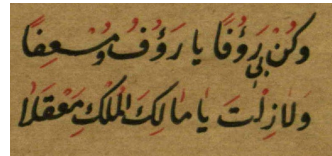 وَكُنْ بِي رَؤُفًا يا رَؤُفُ وَمُسْعِفًا
وَلازِلْتَ يا مالِكَ الْمُلْكِ مَعْقَلا